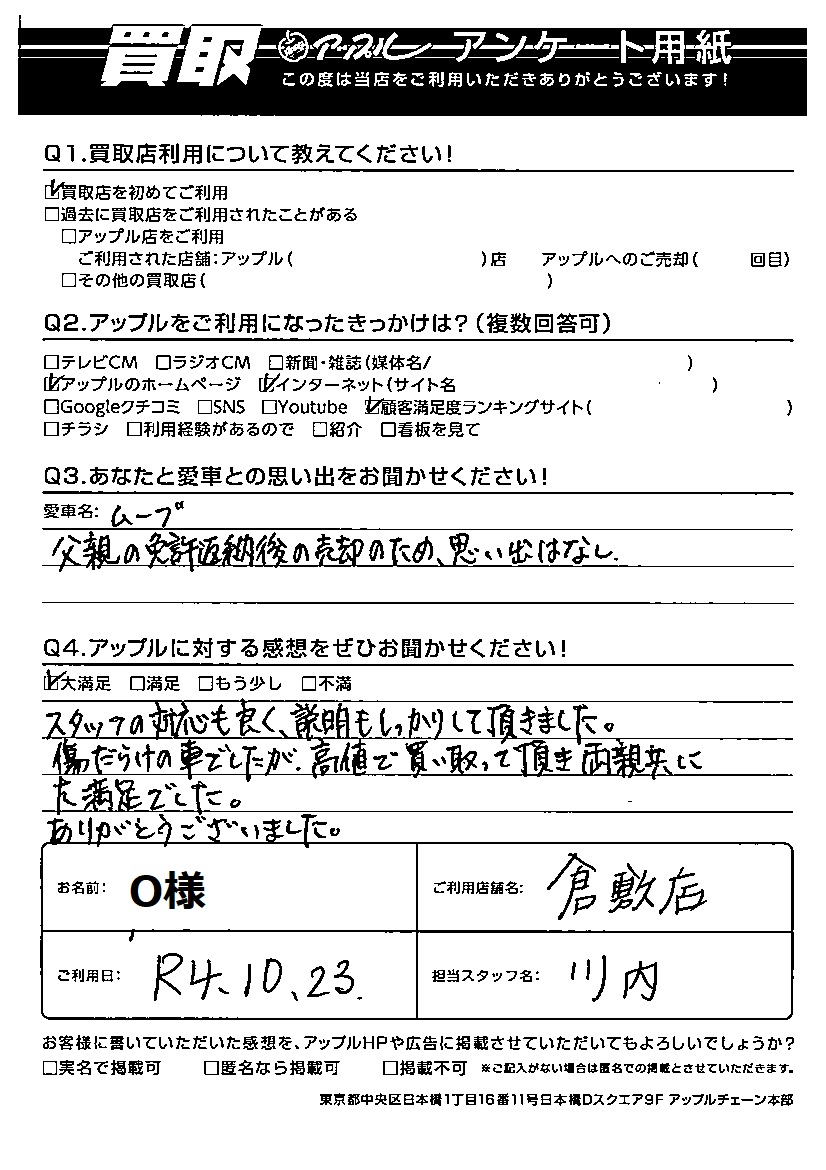 買取 アップル アンケート用紙
この度は当店をご利用いただきありがとうございます！
Q1.買取店利用について教えてください！
☑買取店を初めてご利用
□過去に買取店をご利用されたことがある
□アップル店をご利用
ご利用された店舗：アップル（　　）店　アップルへのご売却（　　回目）
□その他の買取店（　　）
Q2.アップルをご利用になったきっかけは？（複数回答可）
□テレビCM　□ラジオCM　□新聞・雑誌（媒体名/　　）
☑アップルのホームページ　☑インターネット（サイト名　　）
□Googleクチコミ　□SNS　□Youtube　☑顧客満足度ランキングサイト（　　）
□チラシ　□利用経験があるので　□紹介　□看板を見て
Q3.あなたと愛車との思い出をお聞かせください！
愛車名：ムーブ
父親の免許返納後の売却のため、思い出はなし.
Q4.アップルに対する感想をぜひお聞かせください！
☑大満足　□満足　□もう少し　□不満
スタッフの対応も良く、説明もしっかりして頂きました。
傷だらけの車でしたが、高値で買い取って頂き両親共に
大満足でした。
ありがとうございました。
お名前：O様　ご利用店舗名：倉敷店
ご利用日：R4.10.23.　担当スタッフ名：川内
お客様に書いていただいた感想を、アップルHPや広告に掲載させていただいてもよろしいでしょうか？
□実名で掲載可　□匿名なら掲載可　□掲載不可　※ご記入がない場合は匿名での掲載とさせていただきます。
東京都中央区日本橋1丁目16番11号日本橋Dスクエア9F アップルチェーン本部